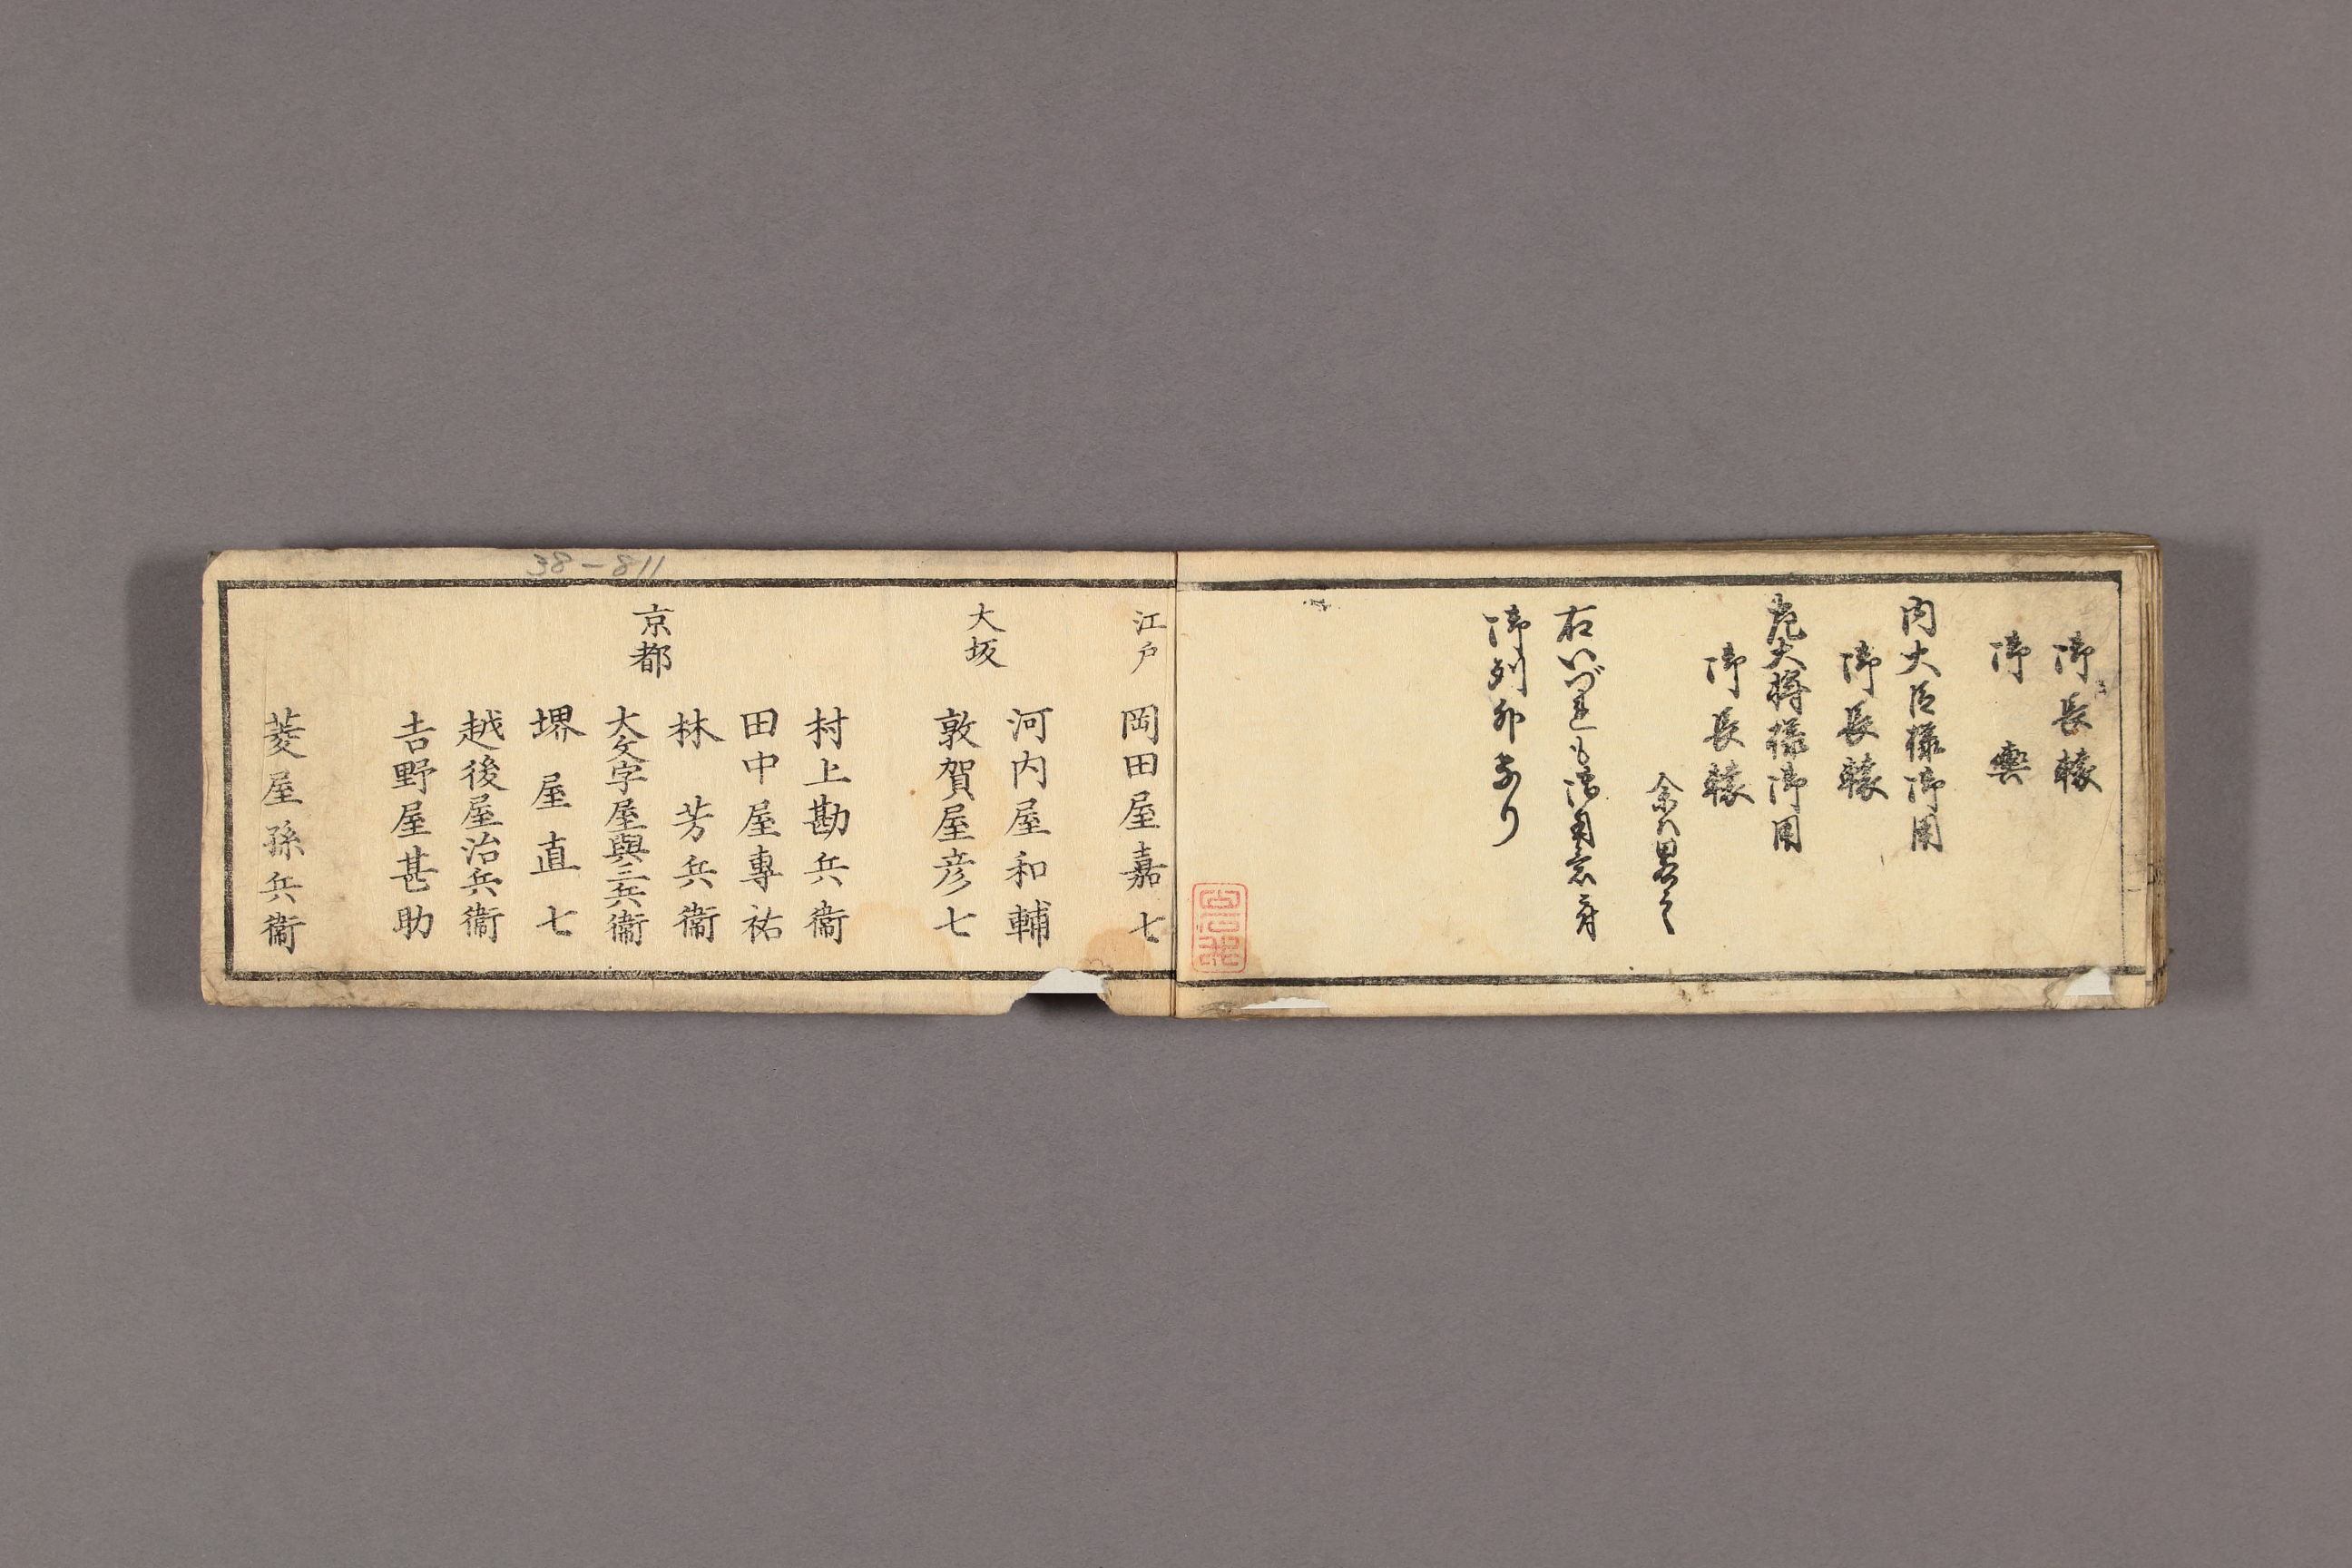 御長轅
御輿
内大臣様御用
御長轅
左大将様御用
御長轅
余ハ畧之
右いづれも御用意之分
御列外なり
江戸
岡田屋嘉七
大坂
河内屋和輔
敦賀屋彦七
京都
村上勘兵衞
田中屋專祐
林芳兵衞
大文字屋與三兵衞
堺屋直七
越後屋治兵衞
吉野屋甚助
菱屋孫兵衞
38-811